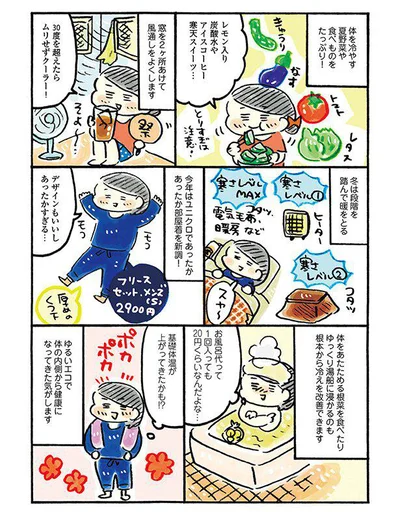 体を冷やす
夏野菜や
食べものを
たっぷり!
きゅうり
なす
トマト
レタス
とりすぎは
注意!
レモン入り
炭酸水や
アイスコーヒー
寒天スイーツ…
窓を2ヶ所あけて
風通しをよくします
祭
そよ〜
30度を超えたら
ムリせずクーラー!
冬は段階を
踏んで暖をとる
寒さ
レベル①
ヒーター
寒さ
レベル②
コタツ
寒さレベル
MAX
コタツ、
電気毛布、
暖房 など
今年はユニクロであったか
あったか部屋着を新調!
モコ
モコ
デザインもいいし
あったかすぎる…
フリース
セット、メンズ
(S)
2900円
厚めの
くつ下
体をあたためる根菜を食べたり
ゆっくり湯船に浸かるのも
根本から冷えを改善できます
お風呂代って
1回入っても
20円くらいなんだよな…
基礎体温が
上がってきたかも!?
ポカポカ
ポカポカ
ゆるいエコで
体の内側から健康に
なってきた気がします